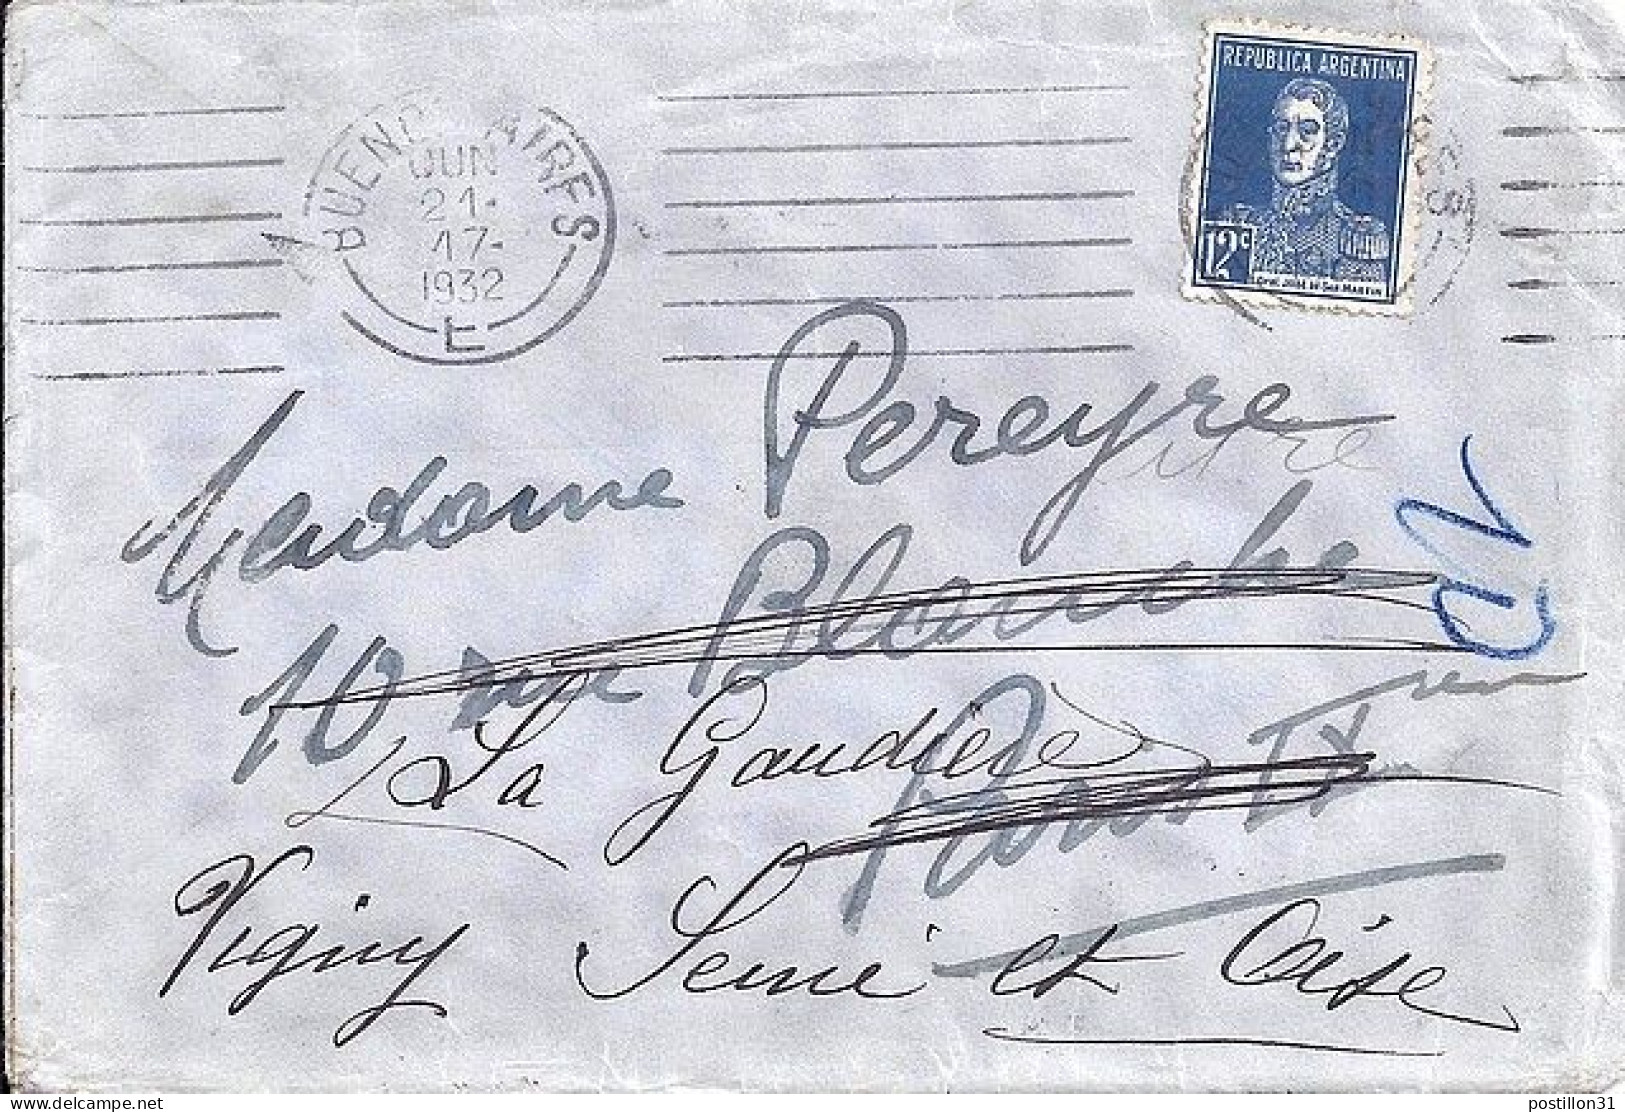 REPUBLICA ARGENTINA
12c
Gral José de San Martin
BUENOS AIRES
JUN
21
17
1932
E
Madame Pereyre
10 rue Blanche
Paris IX eme
La Gaudière
Vigny Seine et Oise
delcampe.net
postillon31